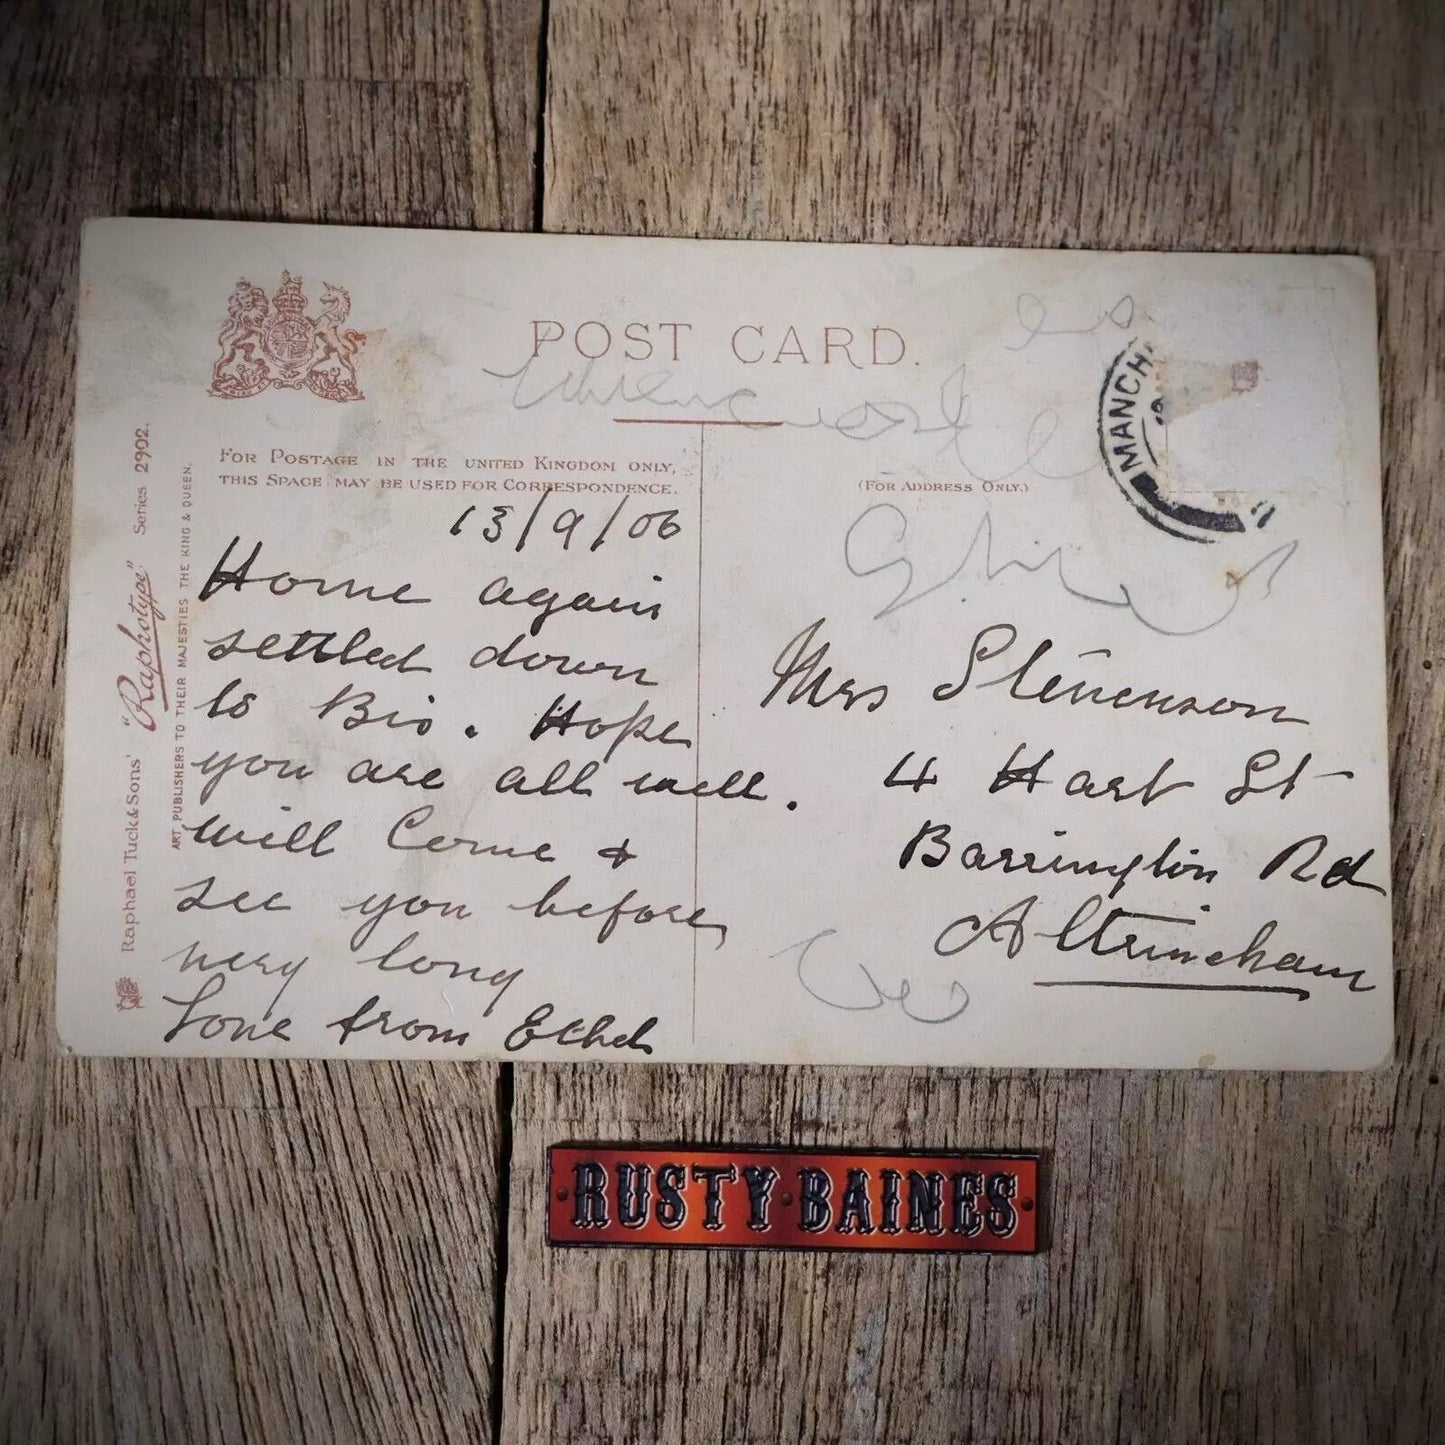 POST CARD.
FOR POSTAGE IN THE UNITED KINGDOM ONLY,
THIS SPACE MAY BE USED FOR CORRESPONDENCE.
(FOR ADDRESS ONLY.)
MANCH
Raphael Tuck & Sons' "Raphotype" Series 2902.
ART PUBLISHERS TO THEIR MAJESTIES THE KING & QUEEN.
13/9/06
Home again
settled down
to Bis. Hope
you are all well.
will Come &
see you before
very long
Love from Ethel
Mrs Stevenson
4 Hart St
Barrington Rd
Altrincham
RUSTY·BAINES